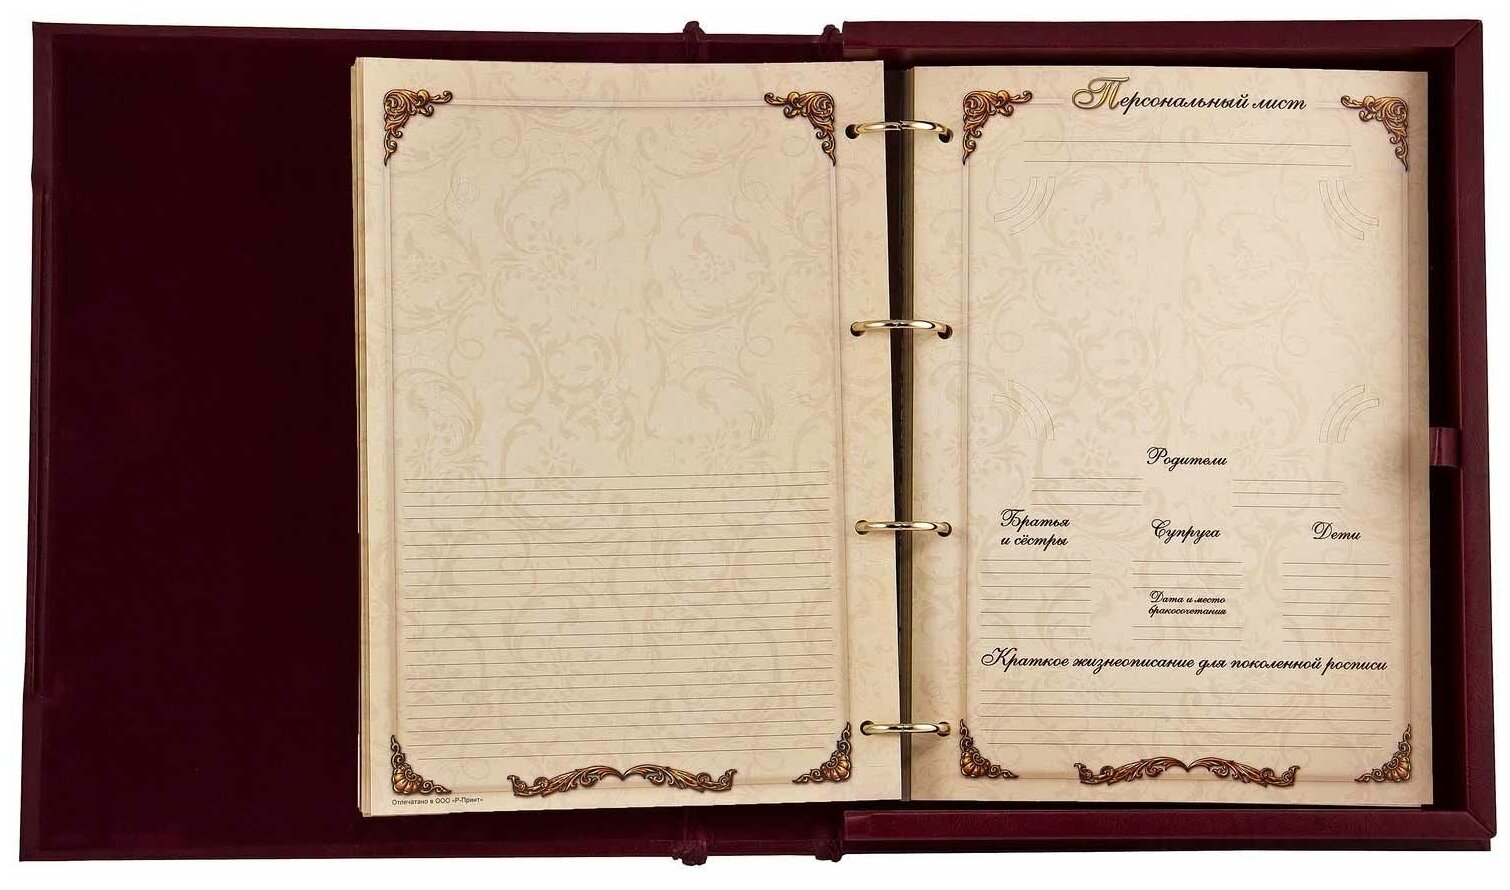 Отпечатано в ООО «Р-Принт»
Персональный лист
Родители
Братья
и сёстры
Супруга
Дети
Дата и место
бракосочетания
Краткое жизнеописание для поколенной росписи